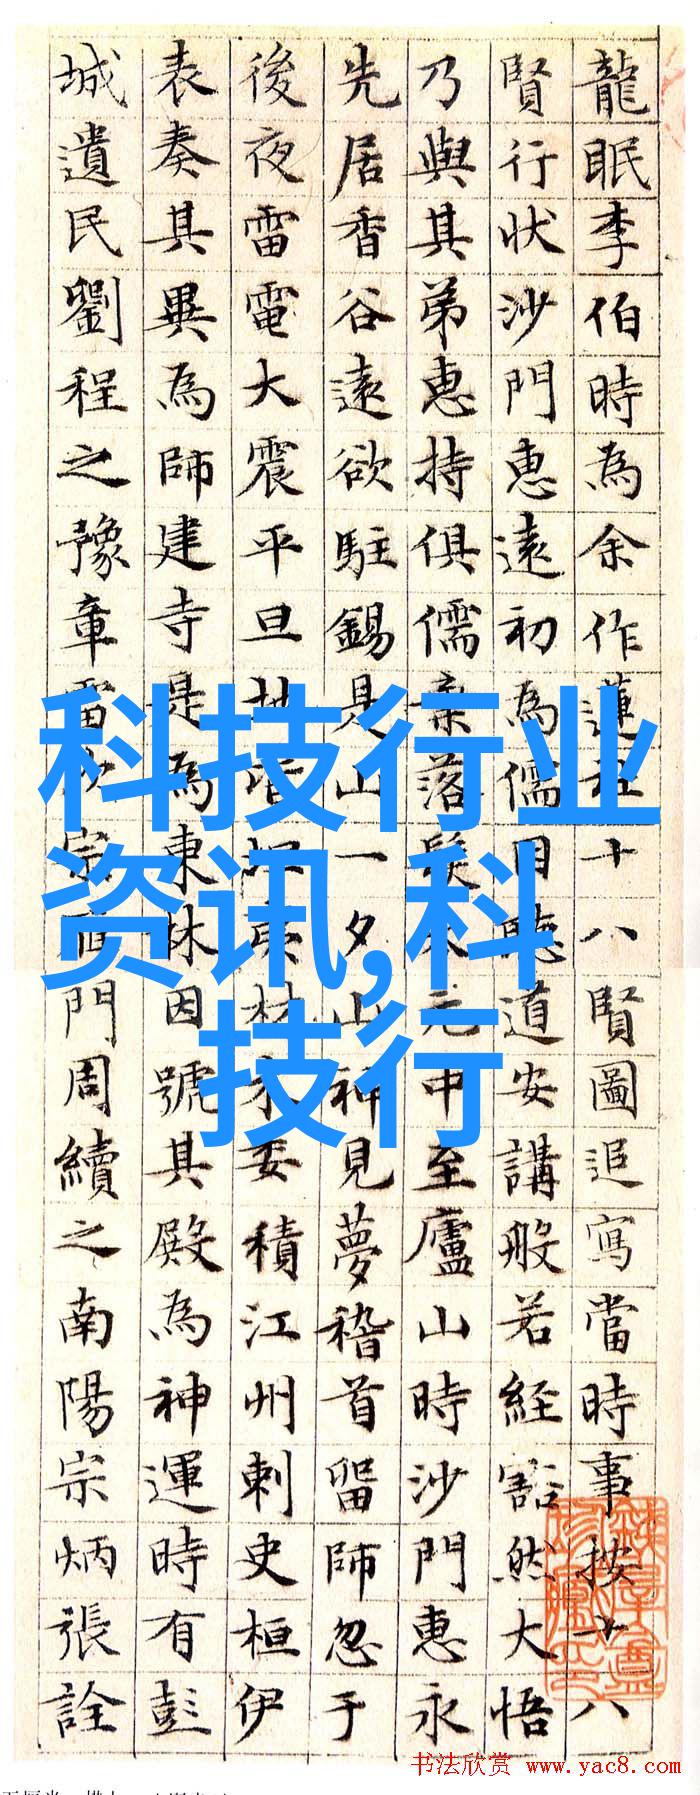 龍眠李伯時為余作蓮社十八賢圖追寫當時事按十八
賢行狀沙門惠遠初為儒因聽道安講般若經豁然大悟
乃與其弟惠持俱儒棄落髮太元中至廬山時沙門惠永
先居香谷遠欲駐錫是山一夕山神見夢稽首留師忽于
後夜雷電大震平旦地皆坦夷材木委積江州刺史桓伊
表奏其異為師建寺是為東林因號其殿為神運時有彭
城遺民劉程之豫章雷次宗鴈門周續之南陽宗炳張詮
科技行业
资讯,科
技行
书法欣赏 www.yac8.com